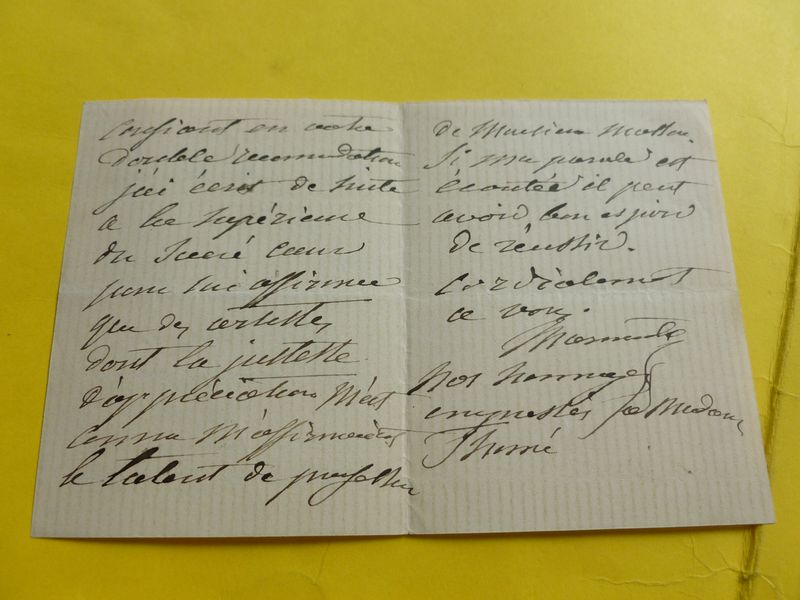 Confiant en votre
double recommdation
j'ai écrit de suite
a la Supérieure
du Sacré cœur
pour lui affirmer
que des artistes
dont la justesse
d'appréciation m'est
connue m'affirmaient
le talent de professeur
de Monsieur
Si ma parole est
écoutée il peut
avoir bon espoir
de réussir.
Cordialement
a vous
Nos hommages
empressés à Madame
Thomé